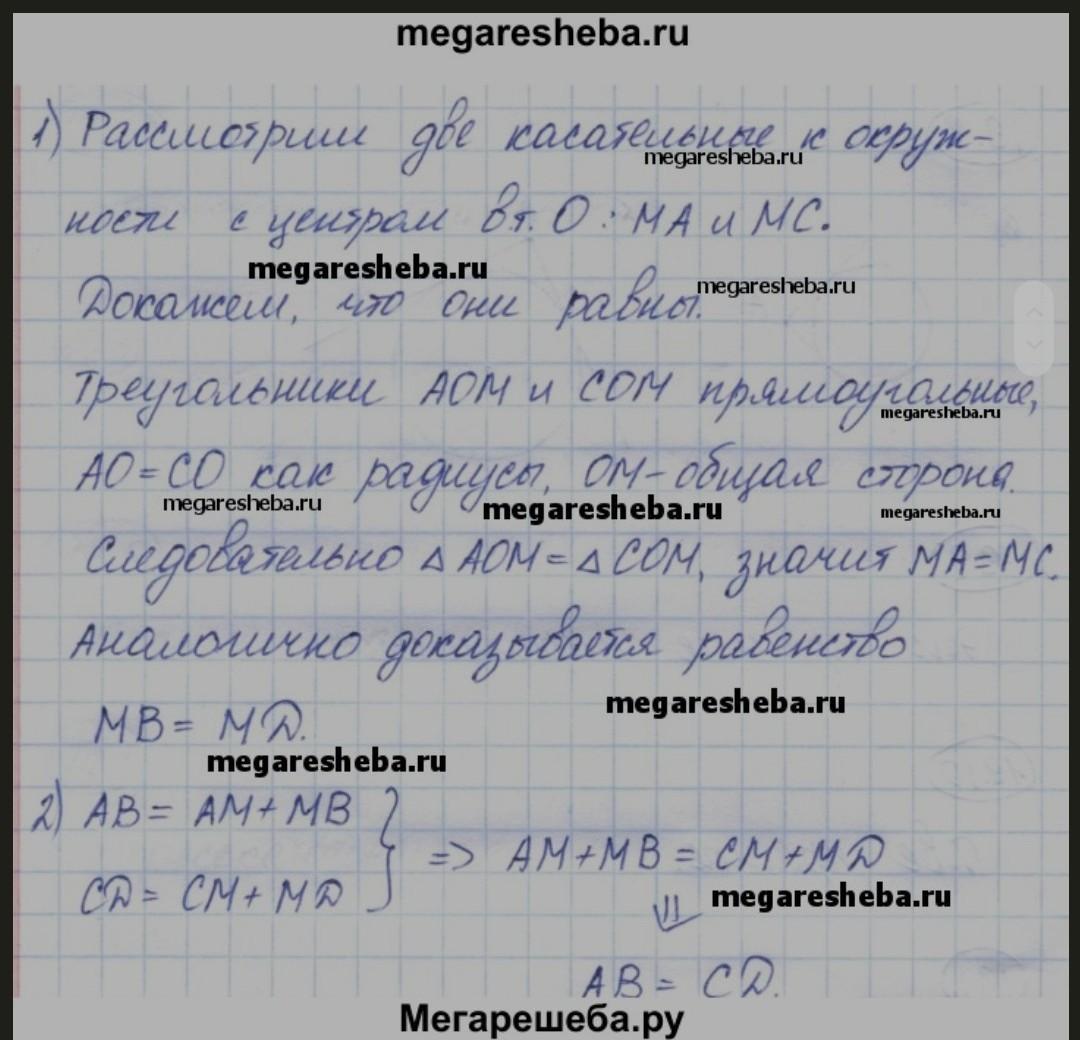 megaresheba.ru
1) Рассмотрим две касательные к окруж-
megaresheba.ru
ности с центром в т. O : MA и MC.
megaresheba.ru
megaresheba.ru
Докажем, что они равны.
Треугольники AOM и COM прямоугольные,
megaresheba.ru
AO = CO как радиусы, OM - общая сторона.
megaresheba.ru
megaresheba.ru
megaresheba.ru
Следовательно △ AOM = △ COM, значит MA = MC.
Аналогично доказывается равенство
megaresheba.ru
MB = MD.
megaresheba.ru
2) AB = AM + MB
CD = CM + MD } => AM + MB = CM + MD
megaresheba.ru
⇓
AB = CD.
Мегарешеба.ру